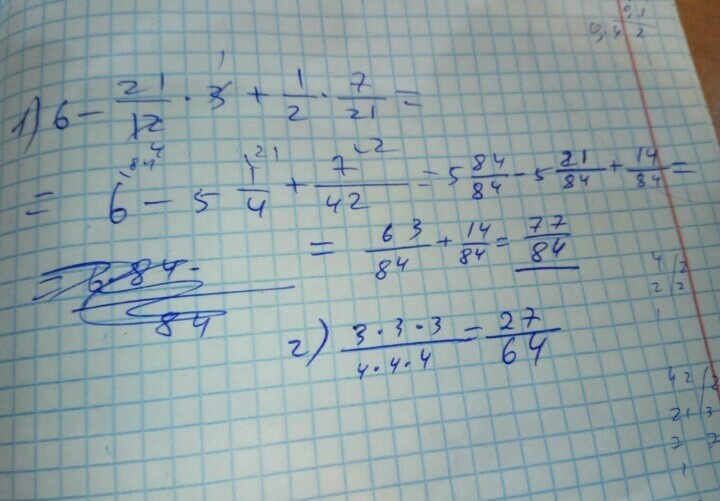 0,1
0,4 2
1) 6 - 21/12 · 3 1 + 1/2 · 7/21 =
= 6 - 5 1/4 + 7/42 = 5 84/84 - 5 21/84 + 14/84 =
= 63/84 + 14/84 = 77/84
2) 3·3·3/4·4·4 = 27/64
4 2
2 2
1
42 2
21 3
7 7
1